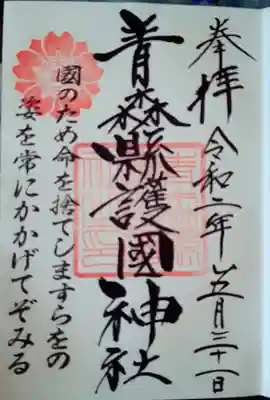 奉拝
令和二年五月三十一日
青森縣護國神社
國のため命を捨てしますらをの
姿を常にかかげてぞみる